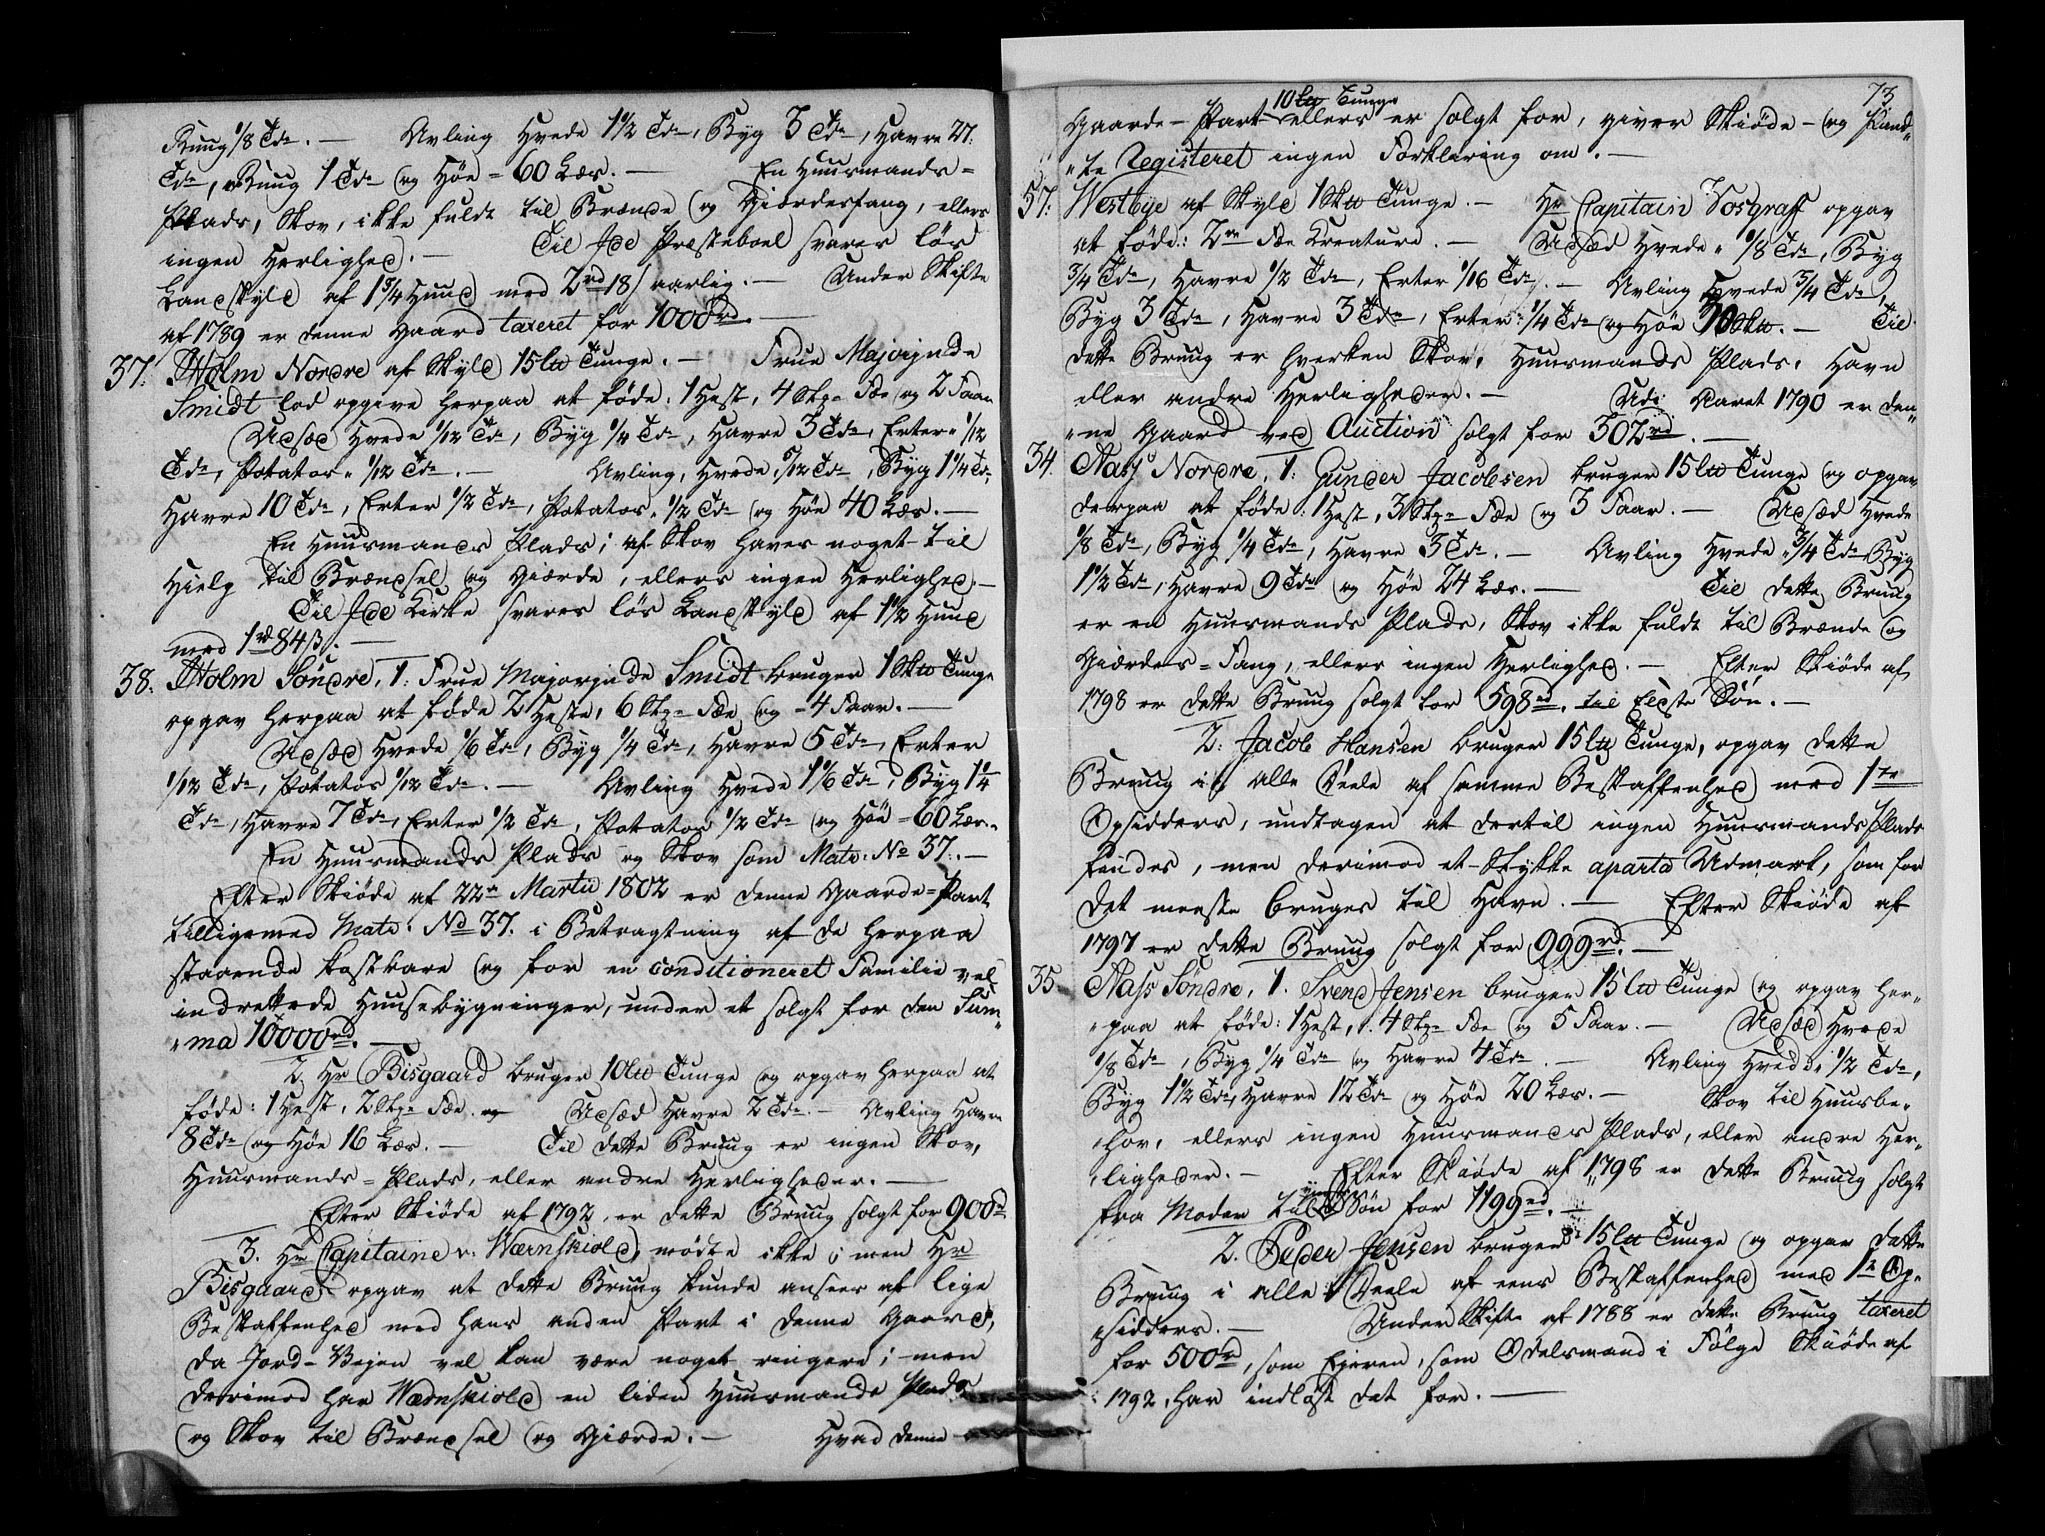 Ruug 1/8 Tde. — Avling Hvede 1 1/2 Tde, Byg 3 Tde, Havre 27
Tde, Ruug 1 Tde og Høe = 60 Læs. — En Huusmands=
Plads, Skov, ikke fuldt til Brænde og Giærdesfang, ellers
ingen Herlighed. — Til Ide Præsteboel svares løs
Landskyld af 1 3/4 Huud med 2 rd 18 s aarlig. — Under Skifte
af 1789 er denne Gaard taxeret for 1000 rd. —
37. Holm Nordre af Skyld 15 l℔ Tunge. — Frue Majorjnde
Smidt lod opgive herpaa at føde: 1 Hest, 4 Stkr Fæe og 2 Faar
Udsæd Hvede 1/12 Tde, Byg 1/4 Tde, Havre 3 Tde, Erter 1/12
Tde, Potatos 1/12 Tde. — Avling, Hvede 5/12 Tde, Byg 1 1/4 Tde,
Havre 10 Tde, Erter 1/2 Tde, Potatos 1/2 Tde og Høe 40 Læs. —
En Huusmands Plads; af Skov haves noget til
Hielp til Brændsel og Giærde, ellers ingen Herlighed. —
Til Ide Kirke svares løs Landskyld af 1 1/2 Huud
med 1 rd 84 ß. —
38. Holm Søndre, 1. Frue Majorjnde Smidt bruger 1 Sk℔ Tunge
opgav herpaa at føde 2 Heste, 6 Stkr Fæe og 4 Faar. —
Udsæd Hvede 1/6 Tde, Byg 1/4 Tde, Havre 5 Tde, Erter
1/12 Tde, Potatos 1/12 Tde. — Avling Hvede 1 1/6 Tde, Byg 1 1/4
Tde, Havre 7 Tde, Erter 1/2 Tde, Potatos 1/2 Tde og Høe = 60 Læs. —
En Huusmands Plads og Skov som Matr: No 37. —
Efter Skiøde af 22de Martii 1802 er denne Gaarde=Part
tilligemed Matr: No 37. i Betragtning af de herpaa
staaende kostbare og for en conditioneret Familie vel
indrettede Huusebygninger, under et solgt for den Sum„
„ma 10000 rd. —
2. Hr Bisgaard bruger 10 l℔ Tunge og opgav herpaa at
føde: 1 Hest, 2 Stkr Fæe. Udsæd Havre 2 Tde. — Avling Havre
8 Tde og Høe 16 Læs. — Til dette Bruug er ingen Skov,
Huusmands=Plads, eller andre Herligheder. —
Efter Skiøde af 1792 er dette Bruug solgt for 900 rd
3. Hr Capitaine v: Wærnskiold, mødte ikke; men Hr
Bisgaard opgav at dette Bruug kunde ansees af lige
Beskaffenhed med hans anden Part i denne Gaard,
da Jord-Veien vel kan være noget ringere; men
derimod har Wærnskiold en liden Huusmands Plads
og Skov til Brændsel og Giærde. — Hvad denne
73
10 l℔ Tunge
Gaarde-Part ellers er solgt for, giver Skiøde- og Pand„
„te Registeret ingen Forklaring om. —
57. Westbye af Skyld 1 Sk℔ Tunge. — Hr Capitain Vosgraff opgav
at føde: 2de Fæe Creature. — Udsæd Hvede 1/8 Tde, Byg
3/4 Tde, Havre 1/2 Tde, Erter 1/16 Tde. — Avling Hvede 3/4 Tde,
Byg 3 Tde, Havre 3 Tde, Erter 1/4 Tde og Høe 30 Sk℔. — Til
dette Bruug er hverken Skov, Huusmands Plads, Havn
eller andre Herligheder. — Udi Aaret 1790 er den„
„ne Gaard ved Auction solgt for 302 rd. —
34. Næss Nordre, 1. Gunder Jacobsen bruger 15 l℔ Tunge og opgav
derpaa at føde: 1 Hest, 3 Stkr Fæe og 3 Faar. — Udsæd Hvede
1/8 Tde, Byg 1/4 Tde, Havre 3 Tde. — Avling Hvede 3/4 Tde, Byg
1 1/2 Tde, Havre 9 Tde og Høe 24 Læs. — Til dette Bruug
er en Huusmands Plads, Skov ikke fuldt til Brænde og
Giærdes=Fang, ellers ingen Herlighed. — Efter Skiøde af
1798 er dette Bruug solgt for 598 rd. til Eldste Søn. —
2. Jacob Hansen bruger 15 l℔ Tunge, opgav dette
Bruug i alle Deele af samme Beskaffenhed med 1ste
Opsidders, undtagen at dertil ingen Huusmands Plads
findes, men derimod et Stykke aparta Udmark, som for
det meeste bruges til Havn. — Efter Skiøde af
1797 er dette Bruug solgt for 999 rd. —
35. Næss Søndre, 1. Svend Jensen bruger 15 l℔ Tunge og opgav her„
„paa at føde: 1 Hest, 4 Stkr Fæe og 5 Faar. — Udsæd Hvede
1/8 Tde, Byg 1/4 Tde og Havre 4 Tde. — Avling Hvede 1/2 Tde,
Byg 1 1/2 Tde, Havre 12 Tde og Høe 20 Læs. — Skov til Huusbe„
„hov, ellers ingen Huusmands Plads, eller andre Her„
„ligheder. — Efter Skiøde af 1798 er dette Bruug solgt
fra Moder til Søn for 1199 rd. —
2. Peder Jensen bruger 15 l℔ Tunge og opgav dette
Bruug i alle Deele af eens Beskaffenhed med 1te Op„
„sidders. — Under Skifte af 1788 er dette Bruug taxeret
for 500 rd, som Ejeren, som Odelsmand i Følge Skiøde af
1792, har indløst det for. —